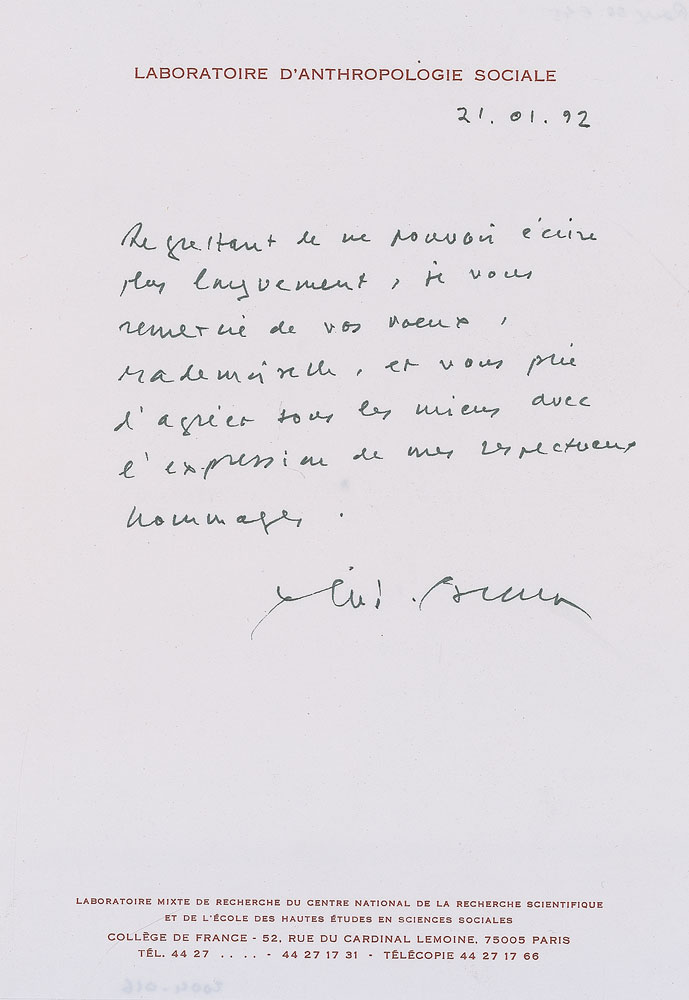 LABORATOIRE D'ANTHROPOLOGIE SOCIALE
21.01.92
Regrettant de ne pouvoir écrire
plus longuement, je vous
remercie de vos voeux,
Mademoiselle, et vous prie
d'agréer tous les miens avec
l'expression de mes respectueux
hommages.
LABORATOIRE MIXTE DE RECHERCHE DU CENTRE NATIONAL DE LA RECHERCHE SCIENTIFIQUE
ET DE L'ÉCOLE DES HAUTES ÉTUDES EN SCIENCES SOCIALES
COLLÈGE DE FRANCE - 52, RUE DU CARDINAL LEMOINE, 75005 PARIS
TÉL. 44 27 .. .. - 44 27 17 31 - TÉLÉCOPIE 44 27 17 66